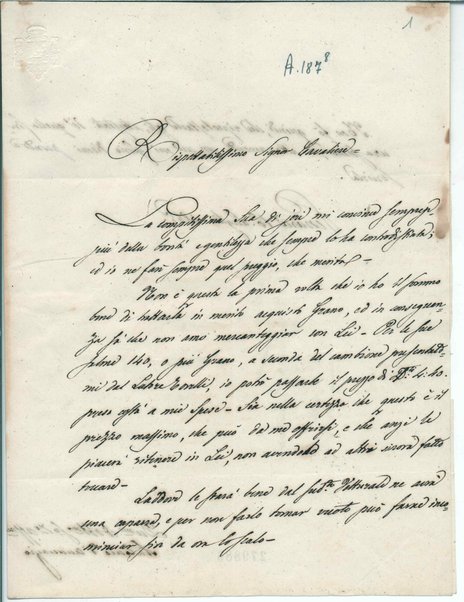 1
A.187⁸
Rispettabilissimo Signor Cavaliere =
La compitissima Sua di jeri mi convince sempreppiù
più della bontà e gentilezza che sempre lo ha contradistinta,
ed io ne farò sempre quel preggio, che merita =
Non è questa la prima volta che io ho il sommo
bene di trattarla in merito acquisti Grano, ed in conseguen-
za sà che non amo mercanteggiar con Lei = Per le sue
salme 140, o più Grano, a seconda del cambine presentato-
mi dal Latore Torelli, io potrò passarle il prezzo di D.ti 4:40.
preso costà a mie spese = Sia nella certezza che questo è il
prezzo massimo, che può da me offrirsi, e che anzi le
piacerà ritenere in Lei, non avendolo ad altri sicora fatto
toccare =
Laddove le starà bene dal sud.to Vetturale ne avrà
una caparra, e per non farlo tornar vuoto può farne inco-
minciar fin da ora lo scalo =